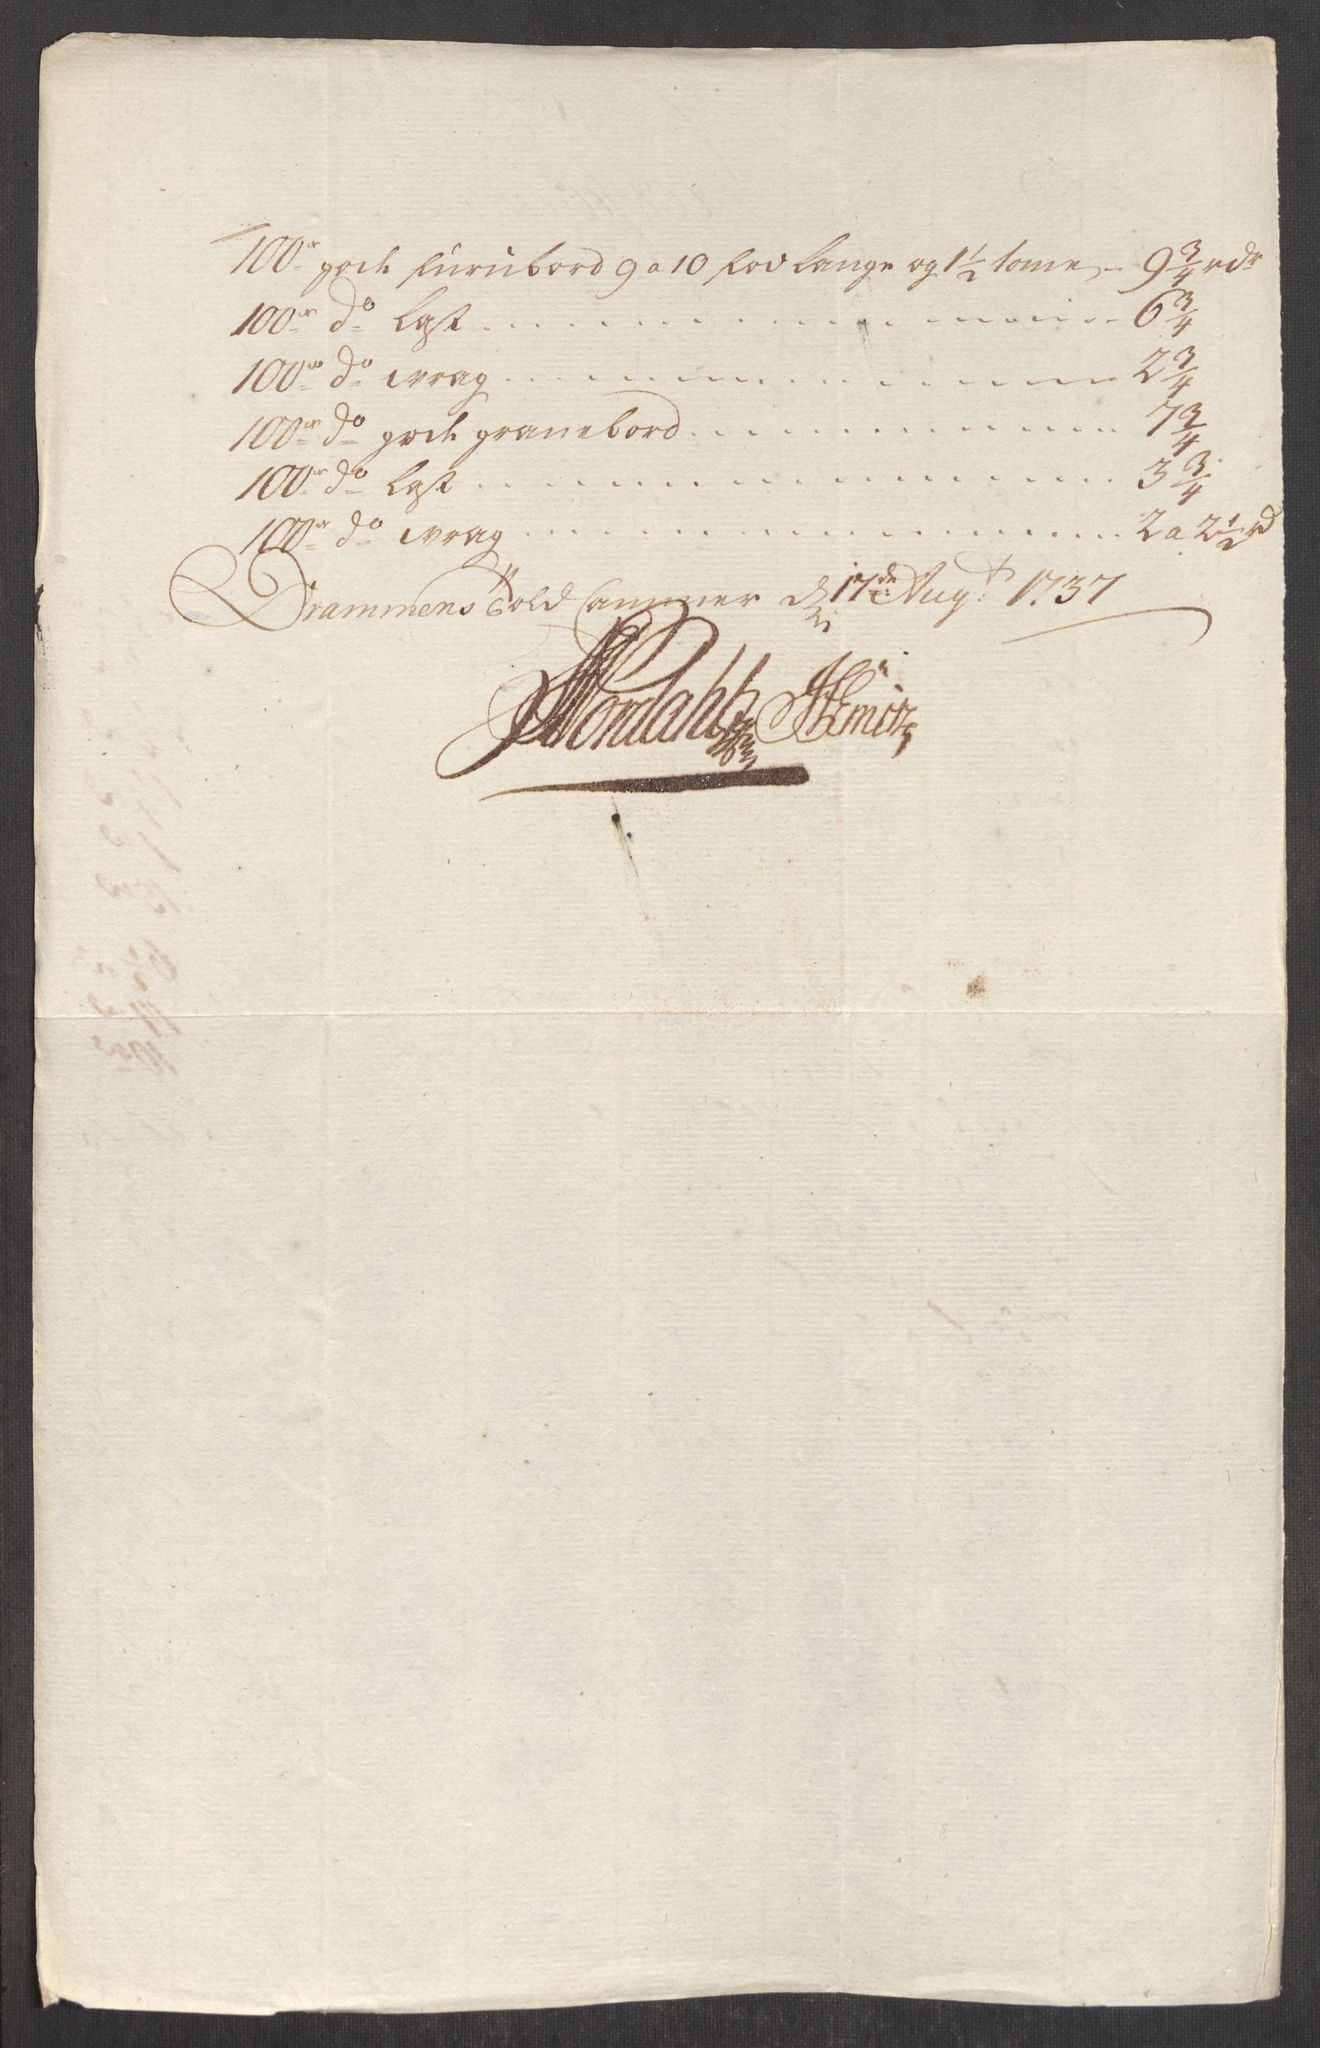 100de gode furubord 9 a 10 fod lange og 1½ tome, - 9¾ rdr
100de do let . . . . . . . . 6¾
100de do wrag . . . . . . . . 2¾
100de do gode granebord . . . . . . . . 7¾
100de do let . . . . . . . . 3¾
100de do wrag . . . . . . . . 2 a 2½ rd
Drammens Told Cammer d 17de Augt: 1737
Nordahl